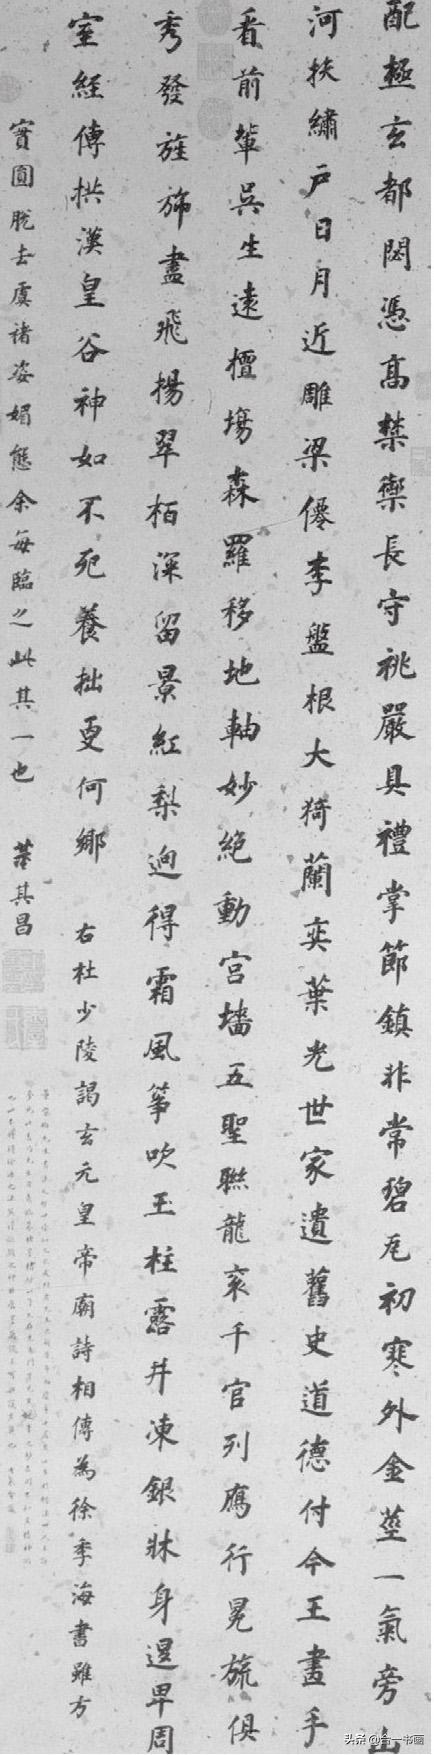 配極玄都閟憑高禁籞長守祧嚴具禮掌節鎮非常碧瓦初寒外金莖一氣旁山
河扶繡戶日月近雕梁僊李盤根大猗蘭奕葉光世家遺舊史道德付今王畫手
看前輩吳生遠擅場森羅移地軸妙絕動宮墻五聖聯龍袞千官列鴈行冕旒俱
秀發旌旆盡飛揚翠栢深留景紅梨迥得霜風箏吹玉柱露井凍銀牀身退卑周
室經傳拱漢皇谷神如不死養拙更何鄉 右杜少陵謁玄元皇帝廟詩相傳為徐季海書雖方
實圓脫去虞褚姿媚態余每臨之此其一也 董其昌
头条@合一书画